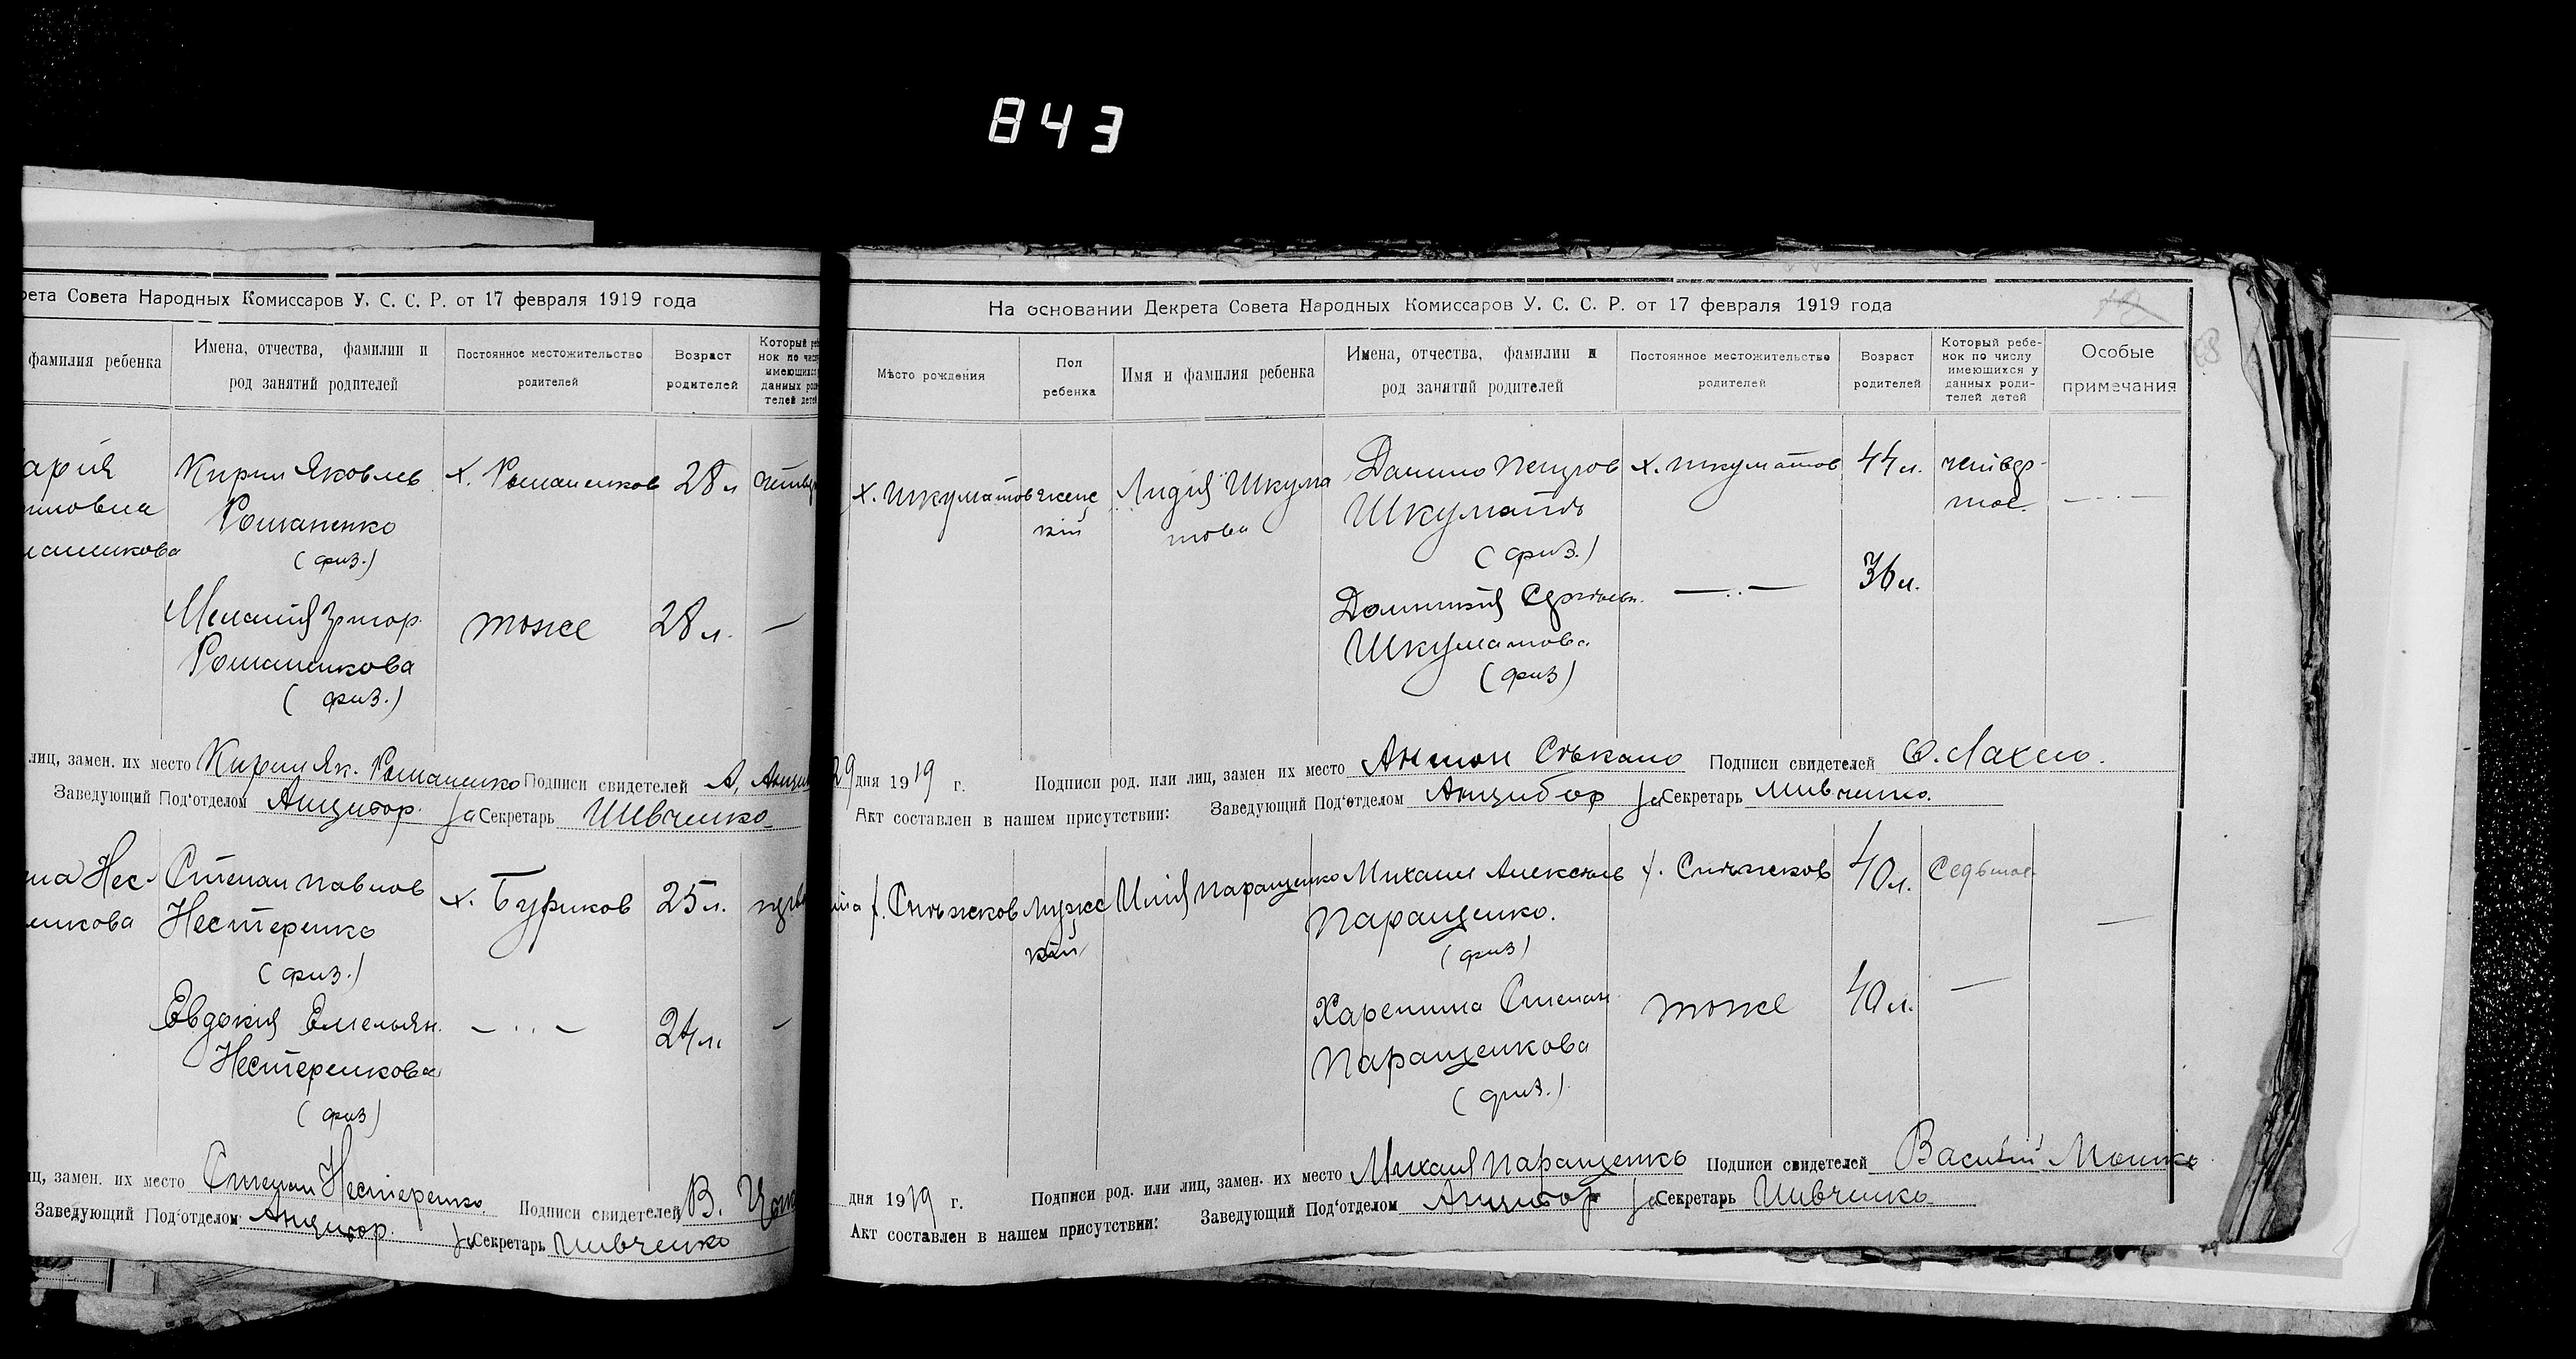 843
рета Совета Народных Комиссаров У. С. С. Р. от 17 февраля 1919 года
фамилия ребенка
Имена, отчества, фамилии и
род занятий родителей
Постоянное местожительство
родителей
Возраст
родителей
Который реб
нок по числу
имеющихся
данных роди
телей детей
ария
Кирил Яковлев
х. Романенков
28 л
Романенко
(физ.)
Мелания Григор.
тоже
28 л.
—
Романенкова
(физ.)
лиц, замен. их место Кирил Як. Романенко Подписи свидетелей А.
Заведующий Под'отделом Анцибор. За Секретарь Шевченко
на Нес-
енкова
Степан Павлов
х. Буриков
25 л.
Нестеренко
(физ.)
Евдокия Емельян.
— .. —
24 л.
—
Нестеренкова
(физ)
иц, замен. их место Степан Нестеренко. Подписи свидетелей В.
Заведующий Под'отделом Анцибор. За Секретарь Шевченко
На основании Декрета Совета Народных Комиссаров У. С. С. Р. от 17 февраля 1919 года
Мѣсто рождения
Пол
ребенка
Имя и фамилия ребенка
Имена, отчества, фамилии и
род занятий родителей
Постоянное местожительство
родителей
Возраст
родителей
Который ребе-
нок по числу
имеющихся у
данных роди-
телей детей
Особые
примечания
х. Шкуматов
женс
кій
Лидия Шкума
това
Данило Петров
х. Шкуматов
44 л.
четвер-
тое.
— .. —
Шкуматов
(физ.)
— .. —
36 л.
Шкуматова
(физ)
29 дня 1919 г. Подписи род. или лиц, замен их место Антон Стѣкало Подписи свидетелей Ѳ. Лахно.
Акт составлен в нашем присутствии: Заведующий Под'отделом Анцибор За Секретарь Шевченко.
х. Снѣжков
мужс
кій
Илія Паращенко
Михаил Алексѣев
х. Снѣжков
40 л.
Седьмое
—
Паращенко.
(физ)
Харетина Степан
тоже
40 л.
—
Паращенкова
(физ.)
дня 1919 г. Подписи род. или лиц, замен. их место Михаил Паращенко Подписи свидетелей Василий
Акт составлен в нашем присутствии: Заведующий Под'отделом Анцибор За Секретарь Шевченко